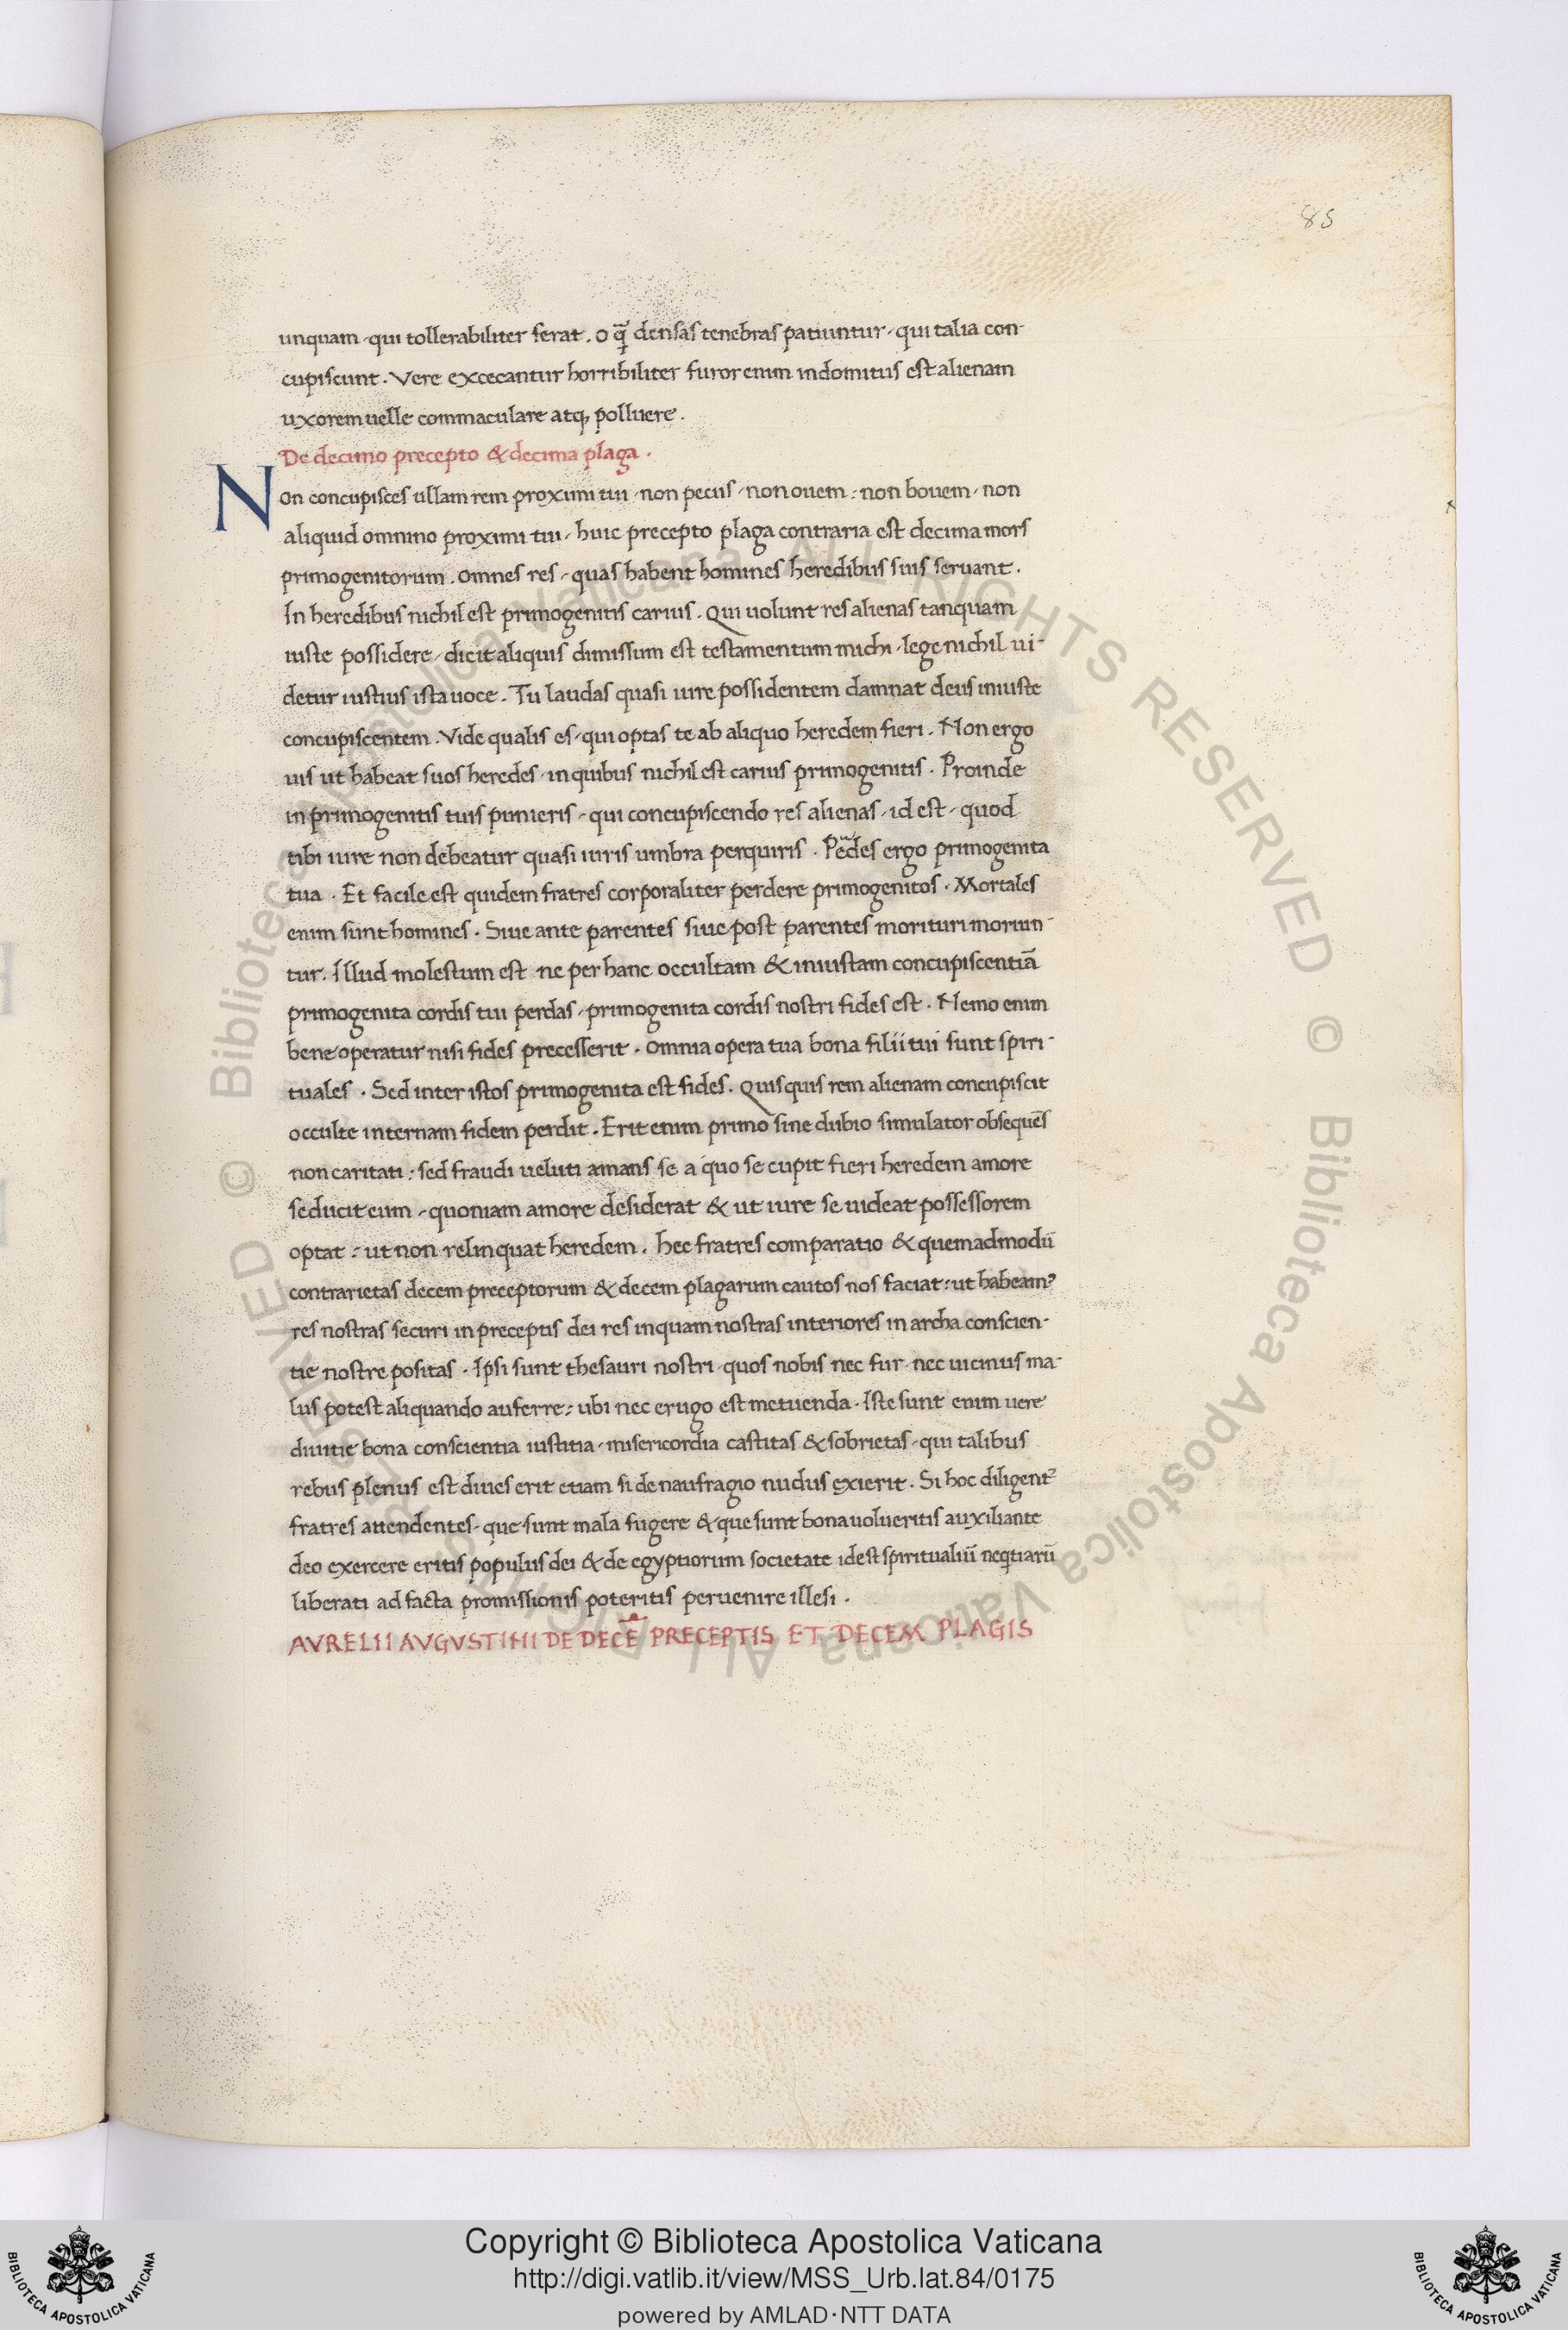 85
unquam · qui tollerabiliter ferat . O q̄ densas tenebras patiuntur · qui talia con-
cupiscunt . Vere excecantur horribiliter furor enim indomitus est alienam
uxorem uelle commaculare atq; polluere .
De decimo precepto & decima plaga .
Non concupisces ullam rem proximi tui · non pecus · non ouem : non bouem · non
aliquid omnino proximi tui · huic precepto plaga contraria est decima mors
primogenitorum . Omnes res · quas habent homines heredibus suis seruant .
In heredibus nichil est primogenitis carius . Qui uolunt res alienas tanquam
iuste possidere · dicit aliquis dimissum est testamentum michi · lege nichil ui-
detur iustius ista uoce . Tu laudas quasi iure possidentem damnat deus iniuste
concupiscentem . Vide qualis es · qui optas te ab aliquo heredem fieri . Non ergo
uis ut habeat suos heredes · in quibus nichil est carius primogenitis . Proinde
in primogenitis tuis punieris · qui concupiscendo res alienas · id est · quod
tibi iure non debeatur quasi iuris umbra perquiris . Pedes ergo primogenita
tua . Et facile est quidem fratres corporaliter perdere primogenitos . Mortales
enim sunt homines . Siue ante parentes siue post parentes morituri moriun-
tur . Illud molestum est ne per hanc occultam & iniustam concupiscentiā
primogenita cordis tui perdas · primogenita cordis nostri fides est . Nemo enim
bene operatur nisi fides precesserit . Omnia opera tua bona filii tui sunt spiri-
tuales . Sed inter istos primogenita est fides . Quisquis rem alienam concupiscit
occulte internam fidem perdit . Erit enim primo sine dubio simulator obsequēs
non caritati : sed fraudi ueluti amans se a quo se cupit fieri heredem amore
seducit eum · quoniam amore desiderat & ut iure se uideat possessorem
optat : ut non relinquat heredem . hec fratres comparatio & quemadmodū
contrarietas decem preceptorum & decem plagarum cautos nos faciat : ut habeam⁹
res nostras securi in preceptis dei res inquam nostras interiores in archa conscien-
tie nostre positas . Ipsi sunt thesauri nostri · quos nobis nec fur · nec uicinus ma-
lus potest aliquando auferre : ubi nec erugo est metuenda . Iste sunt enim uere
diuitie bona conscientia iustitia · misericordia castitas & sobrietas · qui talibus
rebus plenus est diues erit etiam si de naufragio nudus exierit . Si hoc diligent̄
fratres attendentes · que sunt mala fugere & que sunt bona uolueritis auxiliante
deo exercere eritis populus dei & de egyptiorum societate id est spiritualiū neqtiarū
liberati ad facta promissionis poteritis peruenire illesi .
AVRELII AVGVSTINI DE DECĒ PRECEPTIS ET DECEM PLAGIS
© Biblioteca Apostolica Vaticana ALL RIGHTS RESERVED © Biblioteca Apostolica Vaticana ALL RIGHTS RESERVED
Copyright © Biblioteca Apostolica Vaticana
http://digi.vatlib.it/view/MSS_Urb.lat.84/0175
powered by AMLAD·NTT DATA
BIBLIOTECA APOSTOLICA VATICANA
BIBLIOTECA APOSTOLICA VATICANA